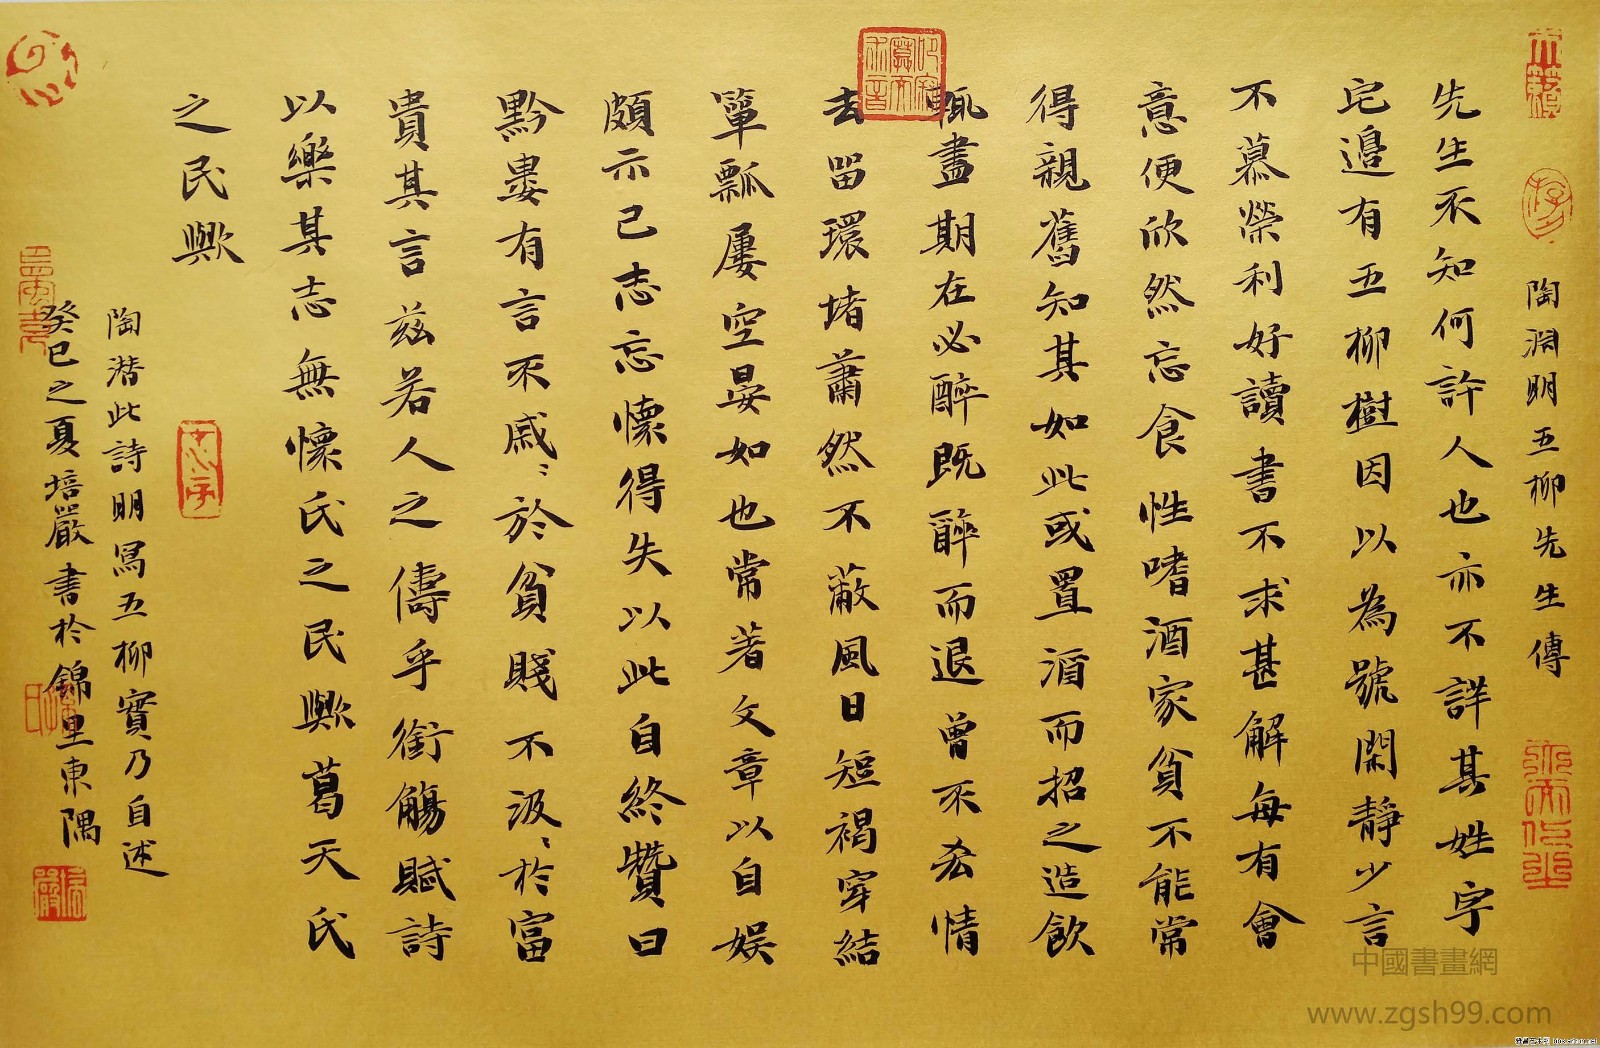 陶淵明五柳先生傳
先生不知何許人也亦不詳其姓字
宅邊有五柳樹因以為號閑靜少言
不慕榮利好讀書不求甚解每有會
意便欣然忘食性嗜酒家貧不能常
得親舊知其如此或置酒而招之造飲
輒盡期在必醉既醉而退曾不吝情
去留環堵蕭然不蔽風日短褐穿結
簞瓢屢空晏如也常著文章以自娛
頗示己志忘懷得失以此自終贊曰
黔婁有言不戚〻於貧賤不汲〻於富
貴其言茲若人之儔乎銜觴賦詩
以樂其志無懷氏之民歟葛天氏
之民歟
陶潛此詩明寫五柳實乃自述
癸巳之夏培嚴書於錦里東隅
中國書畫網
www.zgsh99.com